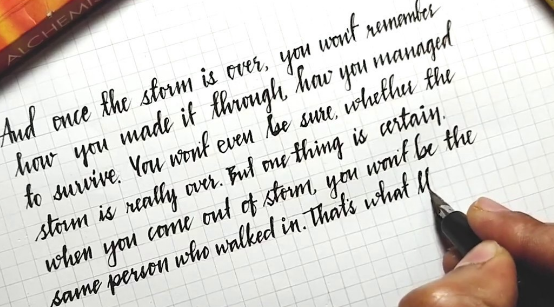 ALCHEMI
And once the storm is over, you wont remember
how you made it through, how you managed
to survive. You wont even be sure, whether the
storm is really over. But one thing is certain.
when you come out of storm, you won't be the
same person who walked in. That's what